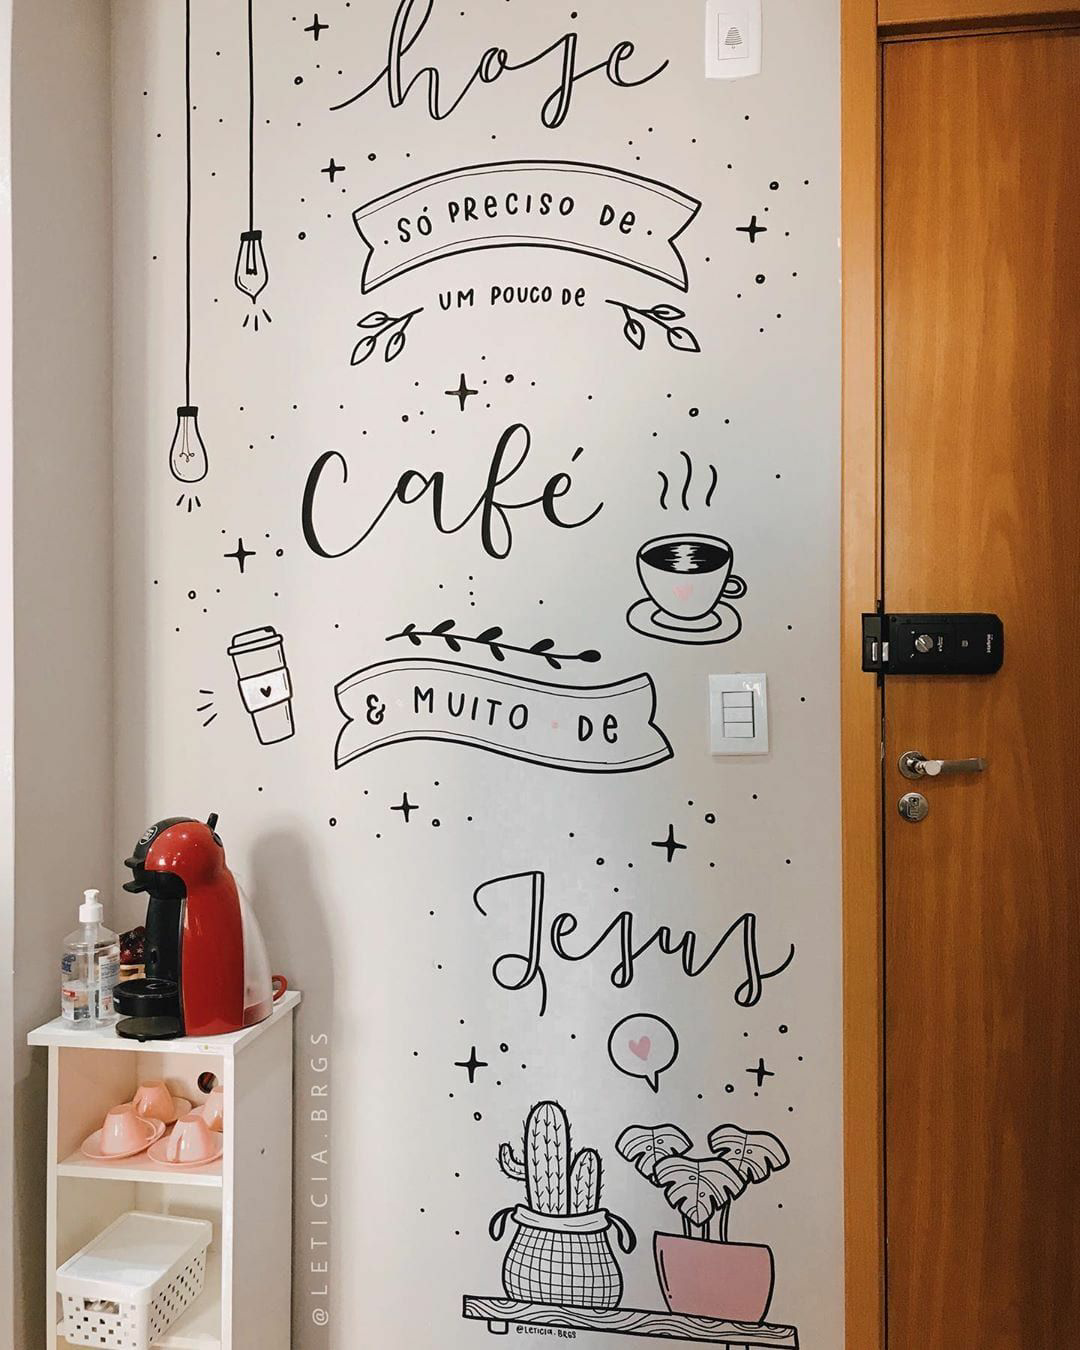 hoje
• SÓ PRECISO DE •
UM POUCO DE
Café
& MUITO • DE
Jesus
@LETICIA.BRGS
@LETICIA.BRGS